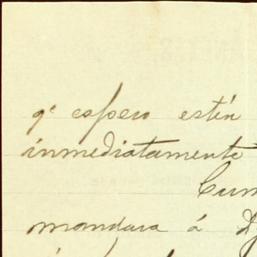 qe espero estén
inmediatamente
Cum
mandara á